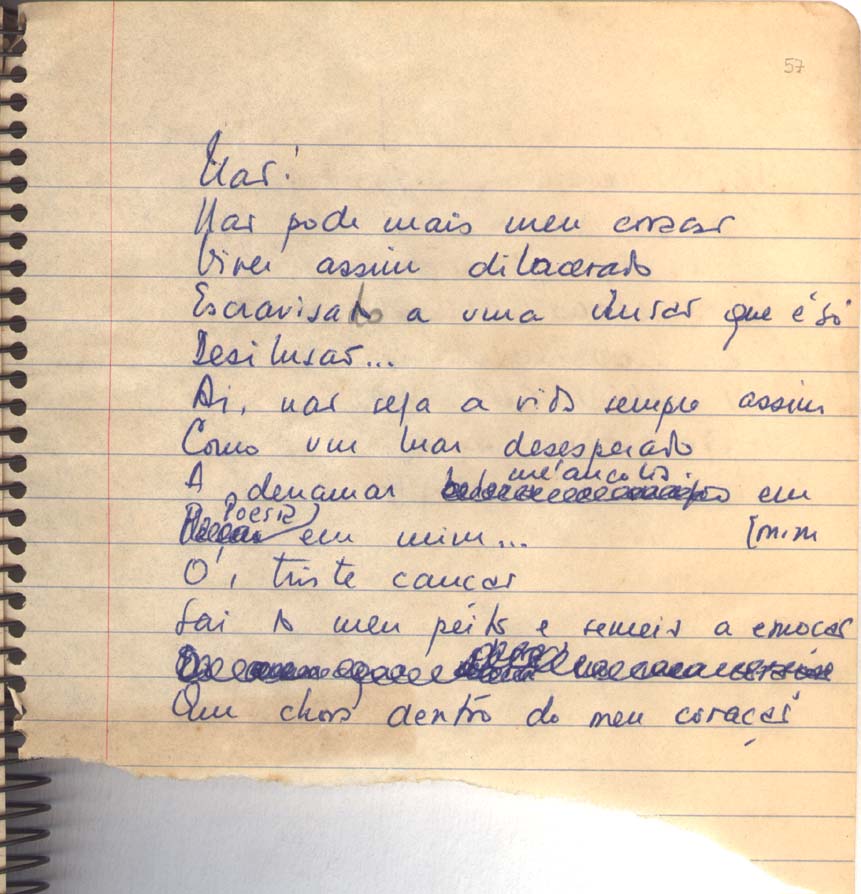 57
Não!
Não pode mais meu coração
Viver assim dilacerado
Escravisado a uma ilusão que é só
Desilusão...
Ai, não seja a vida sempre assim
Como um luar desesperado
A derramar melancolia em
[mim
Poesia em mim...
Ó, triste canção
Sai do meu peito e semeia a emoção
Que chora dentro do meu coração